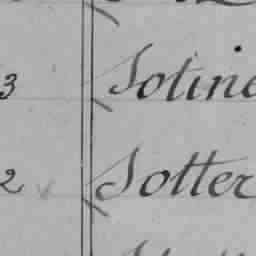 3 Soline
2 Sotter